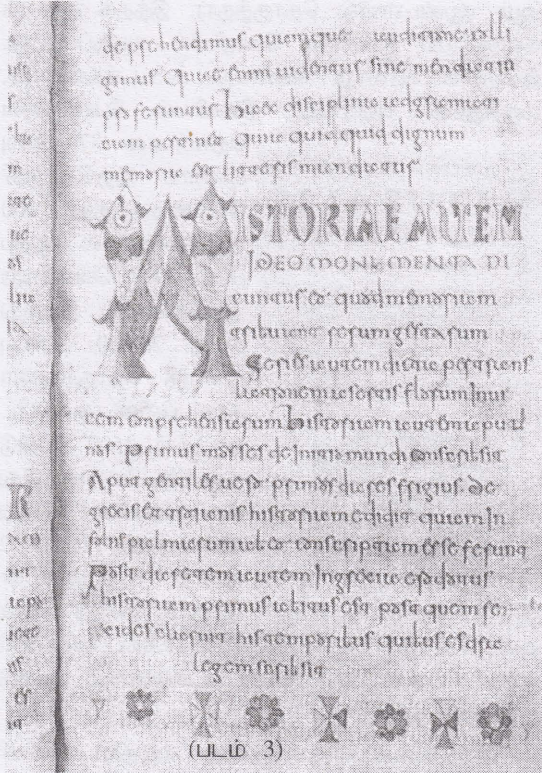 deprehendimus quaeque audicione colli
gimus Quae enim uidentur sine mendacio
proferuntur haec disciplina ad gramati
cam pertinet quia quidquid dignum
memoria est litteris mandatur
HISTORIAE AUTEM
IDEO MONUMENTA DI
cuntur eo quod memoriam
tribuant rerum gestarum
Series autem dicta per trans
lationem a sertis florum inui
cem conprehensarum historiam autem apud
nos primus de initio mundi conscribsit
Apud gentiles uero primus dares frigius de
grecis et troianis historiam edidit quam in
foliis palmarum ab eo conscriptam esse ferunt
Post daretem autem in grecia erodotus
historiam primus abitus est post quem fere
cides claruit his temporibus quibus esdras
legem scribsit
(படம் 3)